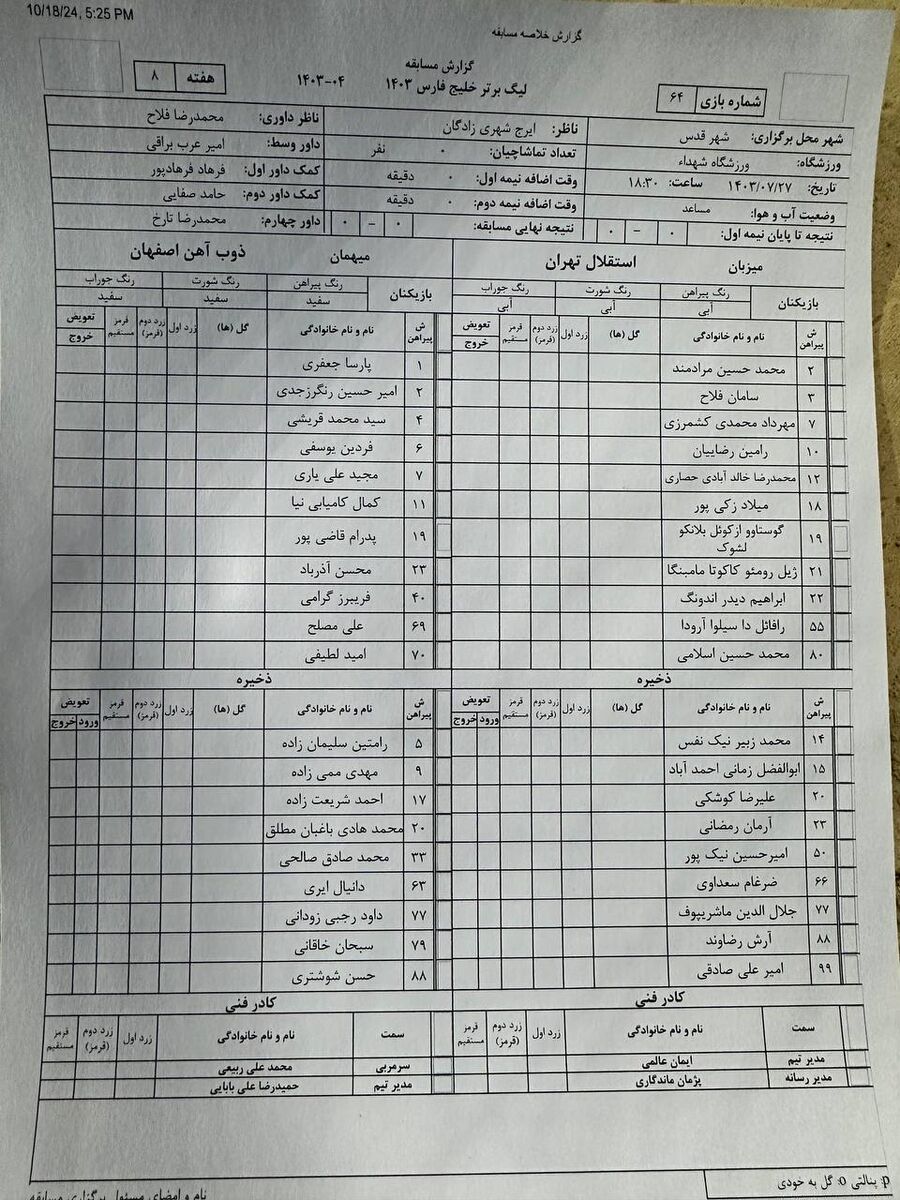 10/18/24, 5:25 PM
گزارش خلاصه مسابقه
گزارش مسابقه
لیگ برتر خلیج فارس ۱۴۰۳ ۱۴۰۳-۰۴
شماره بازی ۶۴
هفته ۸
شهر محل برگزاری: شهر قدس
ورزشگاه: ورزشگاه شهداء
تاریخ: ۱۴۰۳/۰۷/۲۷ ساعت: ۱۸:۳۰
وضعیت آب و هوا: مساعد
نتیجه تا پایان نیمه اول: ۰ - ۰
ناظر: ایرج شهری زادگان
تعداد تماشاچیان: ۰ نفر
وقت اضافه نیمه اول: ۰ دقیقه
وقت اضافه نیمه دوم: ۰ دقیقه
نتیجه نهایی مسابقه: ۰ - ۰
ناظر داوری: محمدرضا فلاح
داور وسط: امیر عرب براقی
کمک داور اول: فرهاد فرهادپور
کمک داور دوم: حامد صفایی
داور چهارم: محمدرضا تارخ
میزبان استقلال تهران
بازیکنان رنگ پیراهن رنگ شورت رنگ جوراب
آبی آبی آبی
ش پیراهن نام و نام خانوادگی گل (ها) زرد اول زرد دوم (قرمز) قرمز مستقیم تعویض
خروج
۲ محمد حسین مرادمند
۳ سامان فلاح
۷ مهرداد محمدی کشمرزی
۱۰ رامین رضاییان
۱۲ محمدرضا خالد آبادی حصاری
۱۸ میلاد زکی پور
۱۹ گوستاوو ازکوئل بلانکو
لشوک
۲۱ ژیل رومئو کاکوتا مامبنگا
۲۲ ابراهیم دیدر اندونگ
۵۵ رافائل دا سیلوا آرودا
۸۰ محمد حسین اسلامی
ذخیره
ش پیراهن نام و نام خانوادگی گل (ها) زرد اول زرد دوم (قرمز) قرمز مستقیم تعویض
ورود خروج
۱۴ محمد زبیر نیک نفس
۱۵ ابوالفضل زمانی احمد آباد
۲۰ علیرضا کوشکی
۲۳ آرمان رمضانی
۵۰ امیرحسین نیک پور
۶۶ ضرغام سعداوی
۷۷ جلال الدین ماشریپوف
۸۸ آرش رضاوند
۹۹ امیر علی صادقی
کادر فنی
سمت نام و نام خانوادگی زرد اول زرد دوم (قرمز) قرمز مستقیم
مدیر تیم ایمان عالمی
مدیر رسانه پژمان ماندگاری
میهمان ذوب آهن اصفهان
بازیکنان رنگ پیراهن رنگ شورت رنگ جوراب
سفید سفید سفید
ش پیراهن نام و نام خانوادگی گل (ها) زرد اول زرد دوم (قرمز) قرمز مستقیم تعویض
خروج
۱ پارسا جعفری
۲ امیر حسین رنگرزجدی
۴ سید محمد قریشی
۶ فردین یوسفی
۷ مجید علی یاری
۱۱ کمال کامیابی نیا
۱۹ پدرام قاضی پور
۲۳ محسن آذرباد
۴۰ فریبرز گرامی
۶۹ علی مصلح
۷۰ امید لطیفی
ذخیره
ش پیراهن نام و نام خانوادگی گل (ها) زرد اول زرد دوم (قرمز) قرمز مستقیم تعویض
ورود خروج
۵ رامتین سلیمان زاده
۹ مهدی ممی زاده
۱۷ احمد شریعت زاده
۲۰ محمد هادی باغبان مطلق
۳۳ محمد صادق صالحی
۶۳ دانیال ایری
۷۷ داود رجبی زودانی
۷۹ سبحان خاقانی
۸۸ حسن شوشتری
کادر فنی
سمت نام و نام خانوادگی زرد اول زرد دوم (قرمز) قرمز مستقیم
سرمربی محمد علی ربیعی
مدیر تیم حمیدرضا علی بابایی
p: پنالتی o: گل به خودی
نام و امضای مسئول برگزاری مسابقه